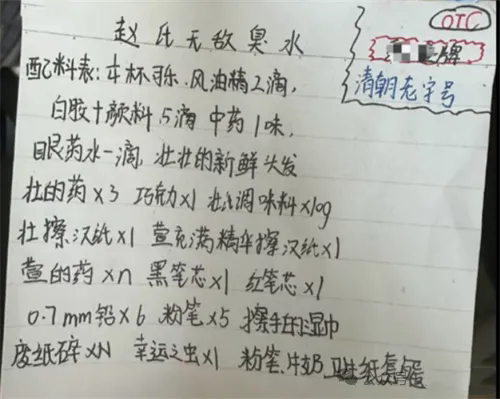 赵氏无敌臭水
OTC
牌
清朝老字号
配料表:半杯可乐.风油精2滴,
白胶+颜料5滴 中药1味,
眼药水一滴,壮壮的新鲜头发
壮的药×3 巧克力×1 壮の调味料×10g
壮擦汗纸×1 萱充满精华擦汗纸×1
萱的药×n 黑笔芯×1 红笔芯×1
0.7mm铅×6 粉笔×5 擦手的湿巾
废纸碎×N 幸运之虫×1 粉笔.牛奶 卫生纸